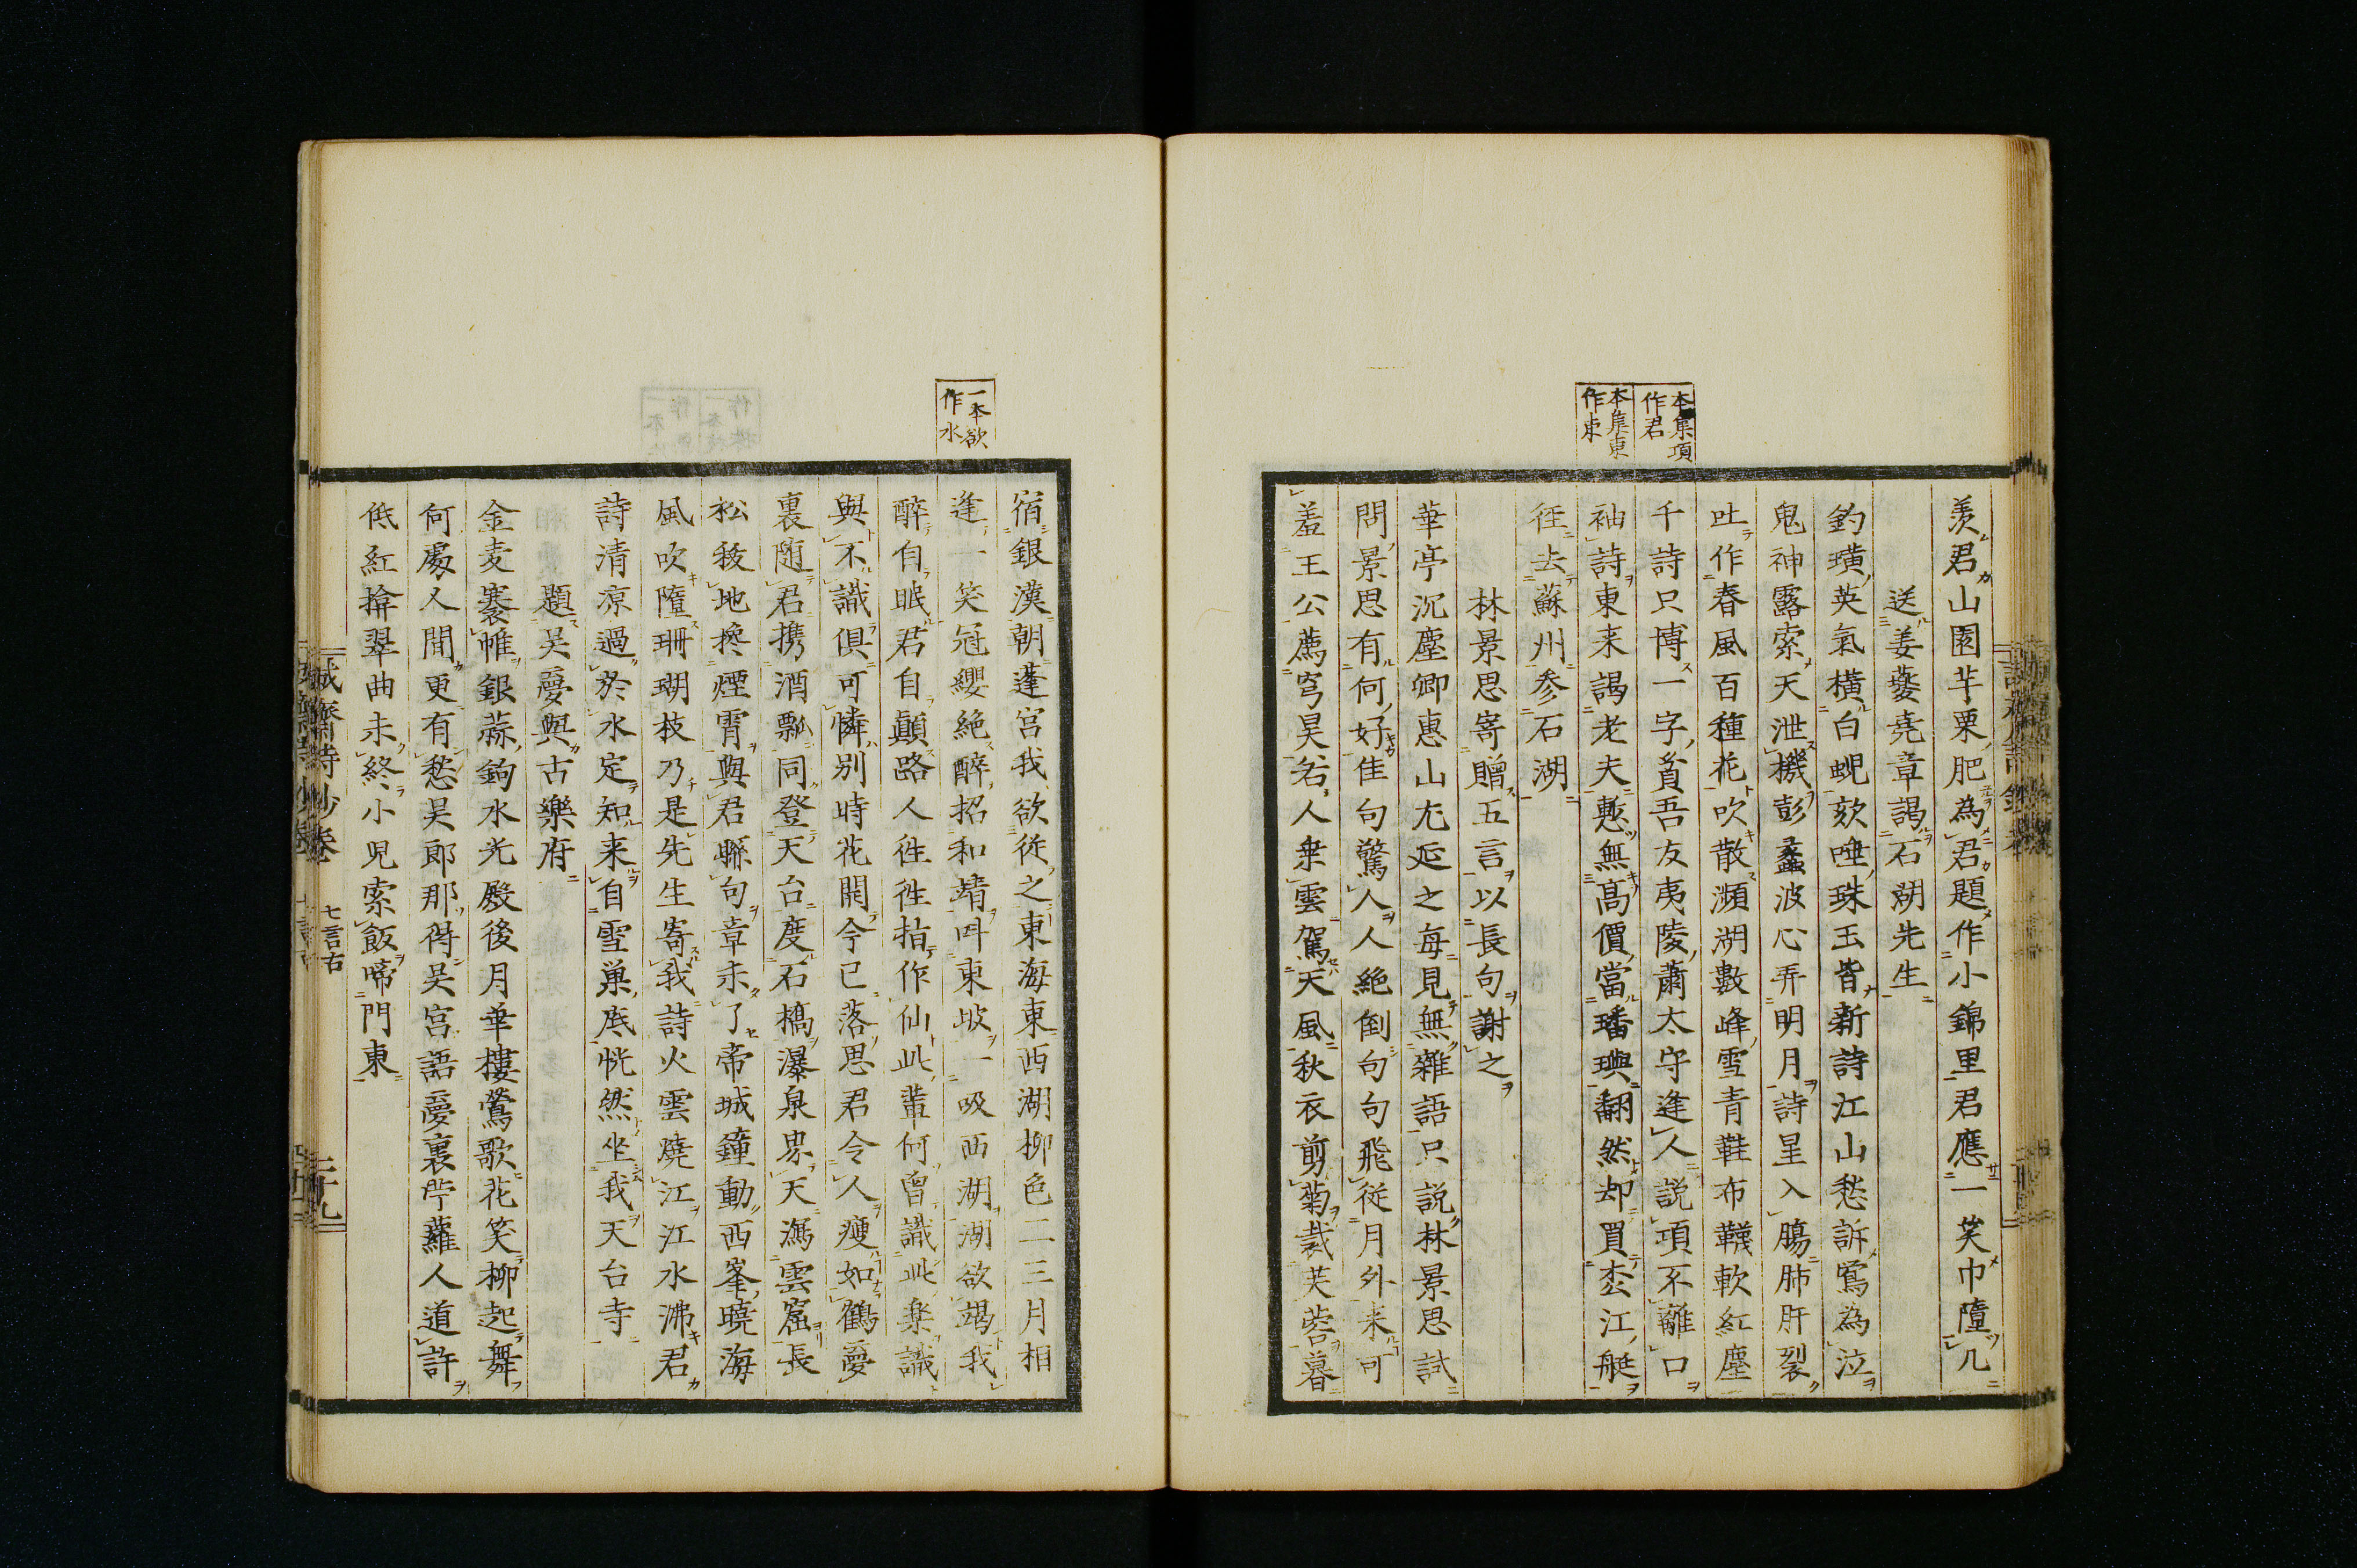 羨君山園芋栗肥為君題作小錦里君應一笑巾墮几
送姜夔堯章謁石湖先生
釣璜英氣橫白蜺欬唾珠玉皆新詩江山愁訴鶯為泣
鬼神露索天泄機彭蠡波心弄明月詩呈入腸肺肝裂
吐作春風百種花吹散瀕湖數峰雪青鞋布韈軟紅塵
千詩只博一字貧吾友夷陵蕭太守逢人説項不離口
袖詩東来謁老夫慙無高價當璠璵翻然却買松江艇
徑去蘇州參石湖
林景思寄贈五言以長句謝之
華亭沉麈卿惠山尤延之每見無雜語只説林景思試
問景思有何好佳句驚人人絶倒句句飛従月外来可
羞王公薦穹昊名人乗雲駕天風秋衣剪菊裁芙蓉暮
本集項
作君
本集東
作来
宿銀漢朝蓬宮我欲従之東海東西湖柳色二三月相
逢一笑冠纓絶醉招和靖呌東坡一吸西湖湖欲竭我
醉自眠君自顛路人徃徃指作仙此輩何曾識此樂識
與不識俱可憐别時花開今已落思君令人瘦如鶴夢
裏随君携酒瓢同登天台度石橋瀑泉界天瀉雲窟長
松拔地攙煙霄與君聯句章未了帝城鐘動西峯曉海
風吹墮珊瑚枝乃是先生寄我詩火雲燒江江水沸君
詩清凉過於水定知来自雪巢底恍然坐我天台寺
題吴夢與古樂府
金麦褰帷銀蒜鉤水光殿後月華樓鶯歌花笑柳起舞
何處人間更有愁吴郎那得吴宮語夢裏苧蘿人道許
低紅揜翠曲未終小児索飯啼門東
一本欲
作水
誠齋詩鈔卷
七言古
二十九